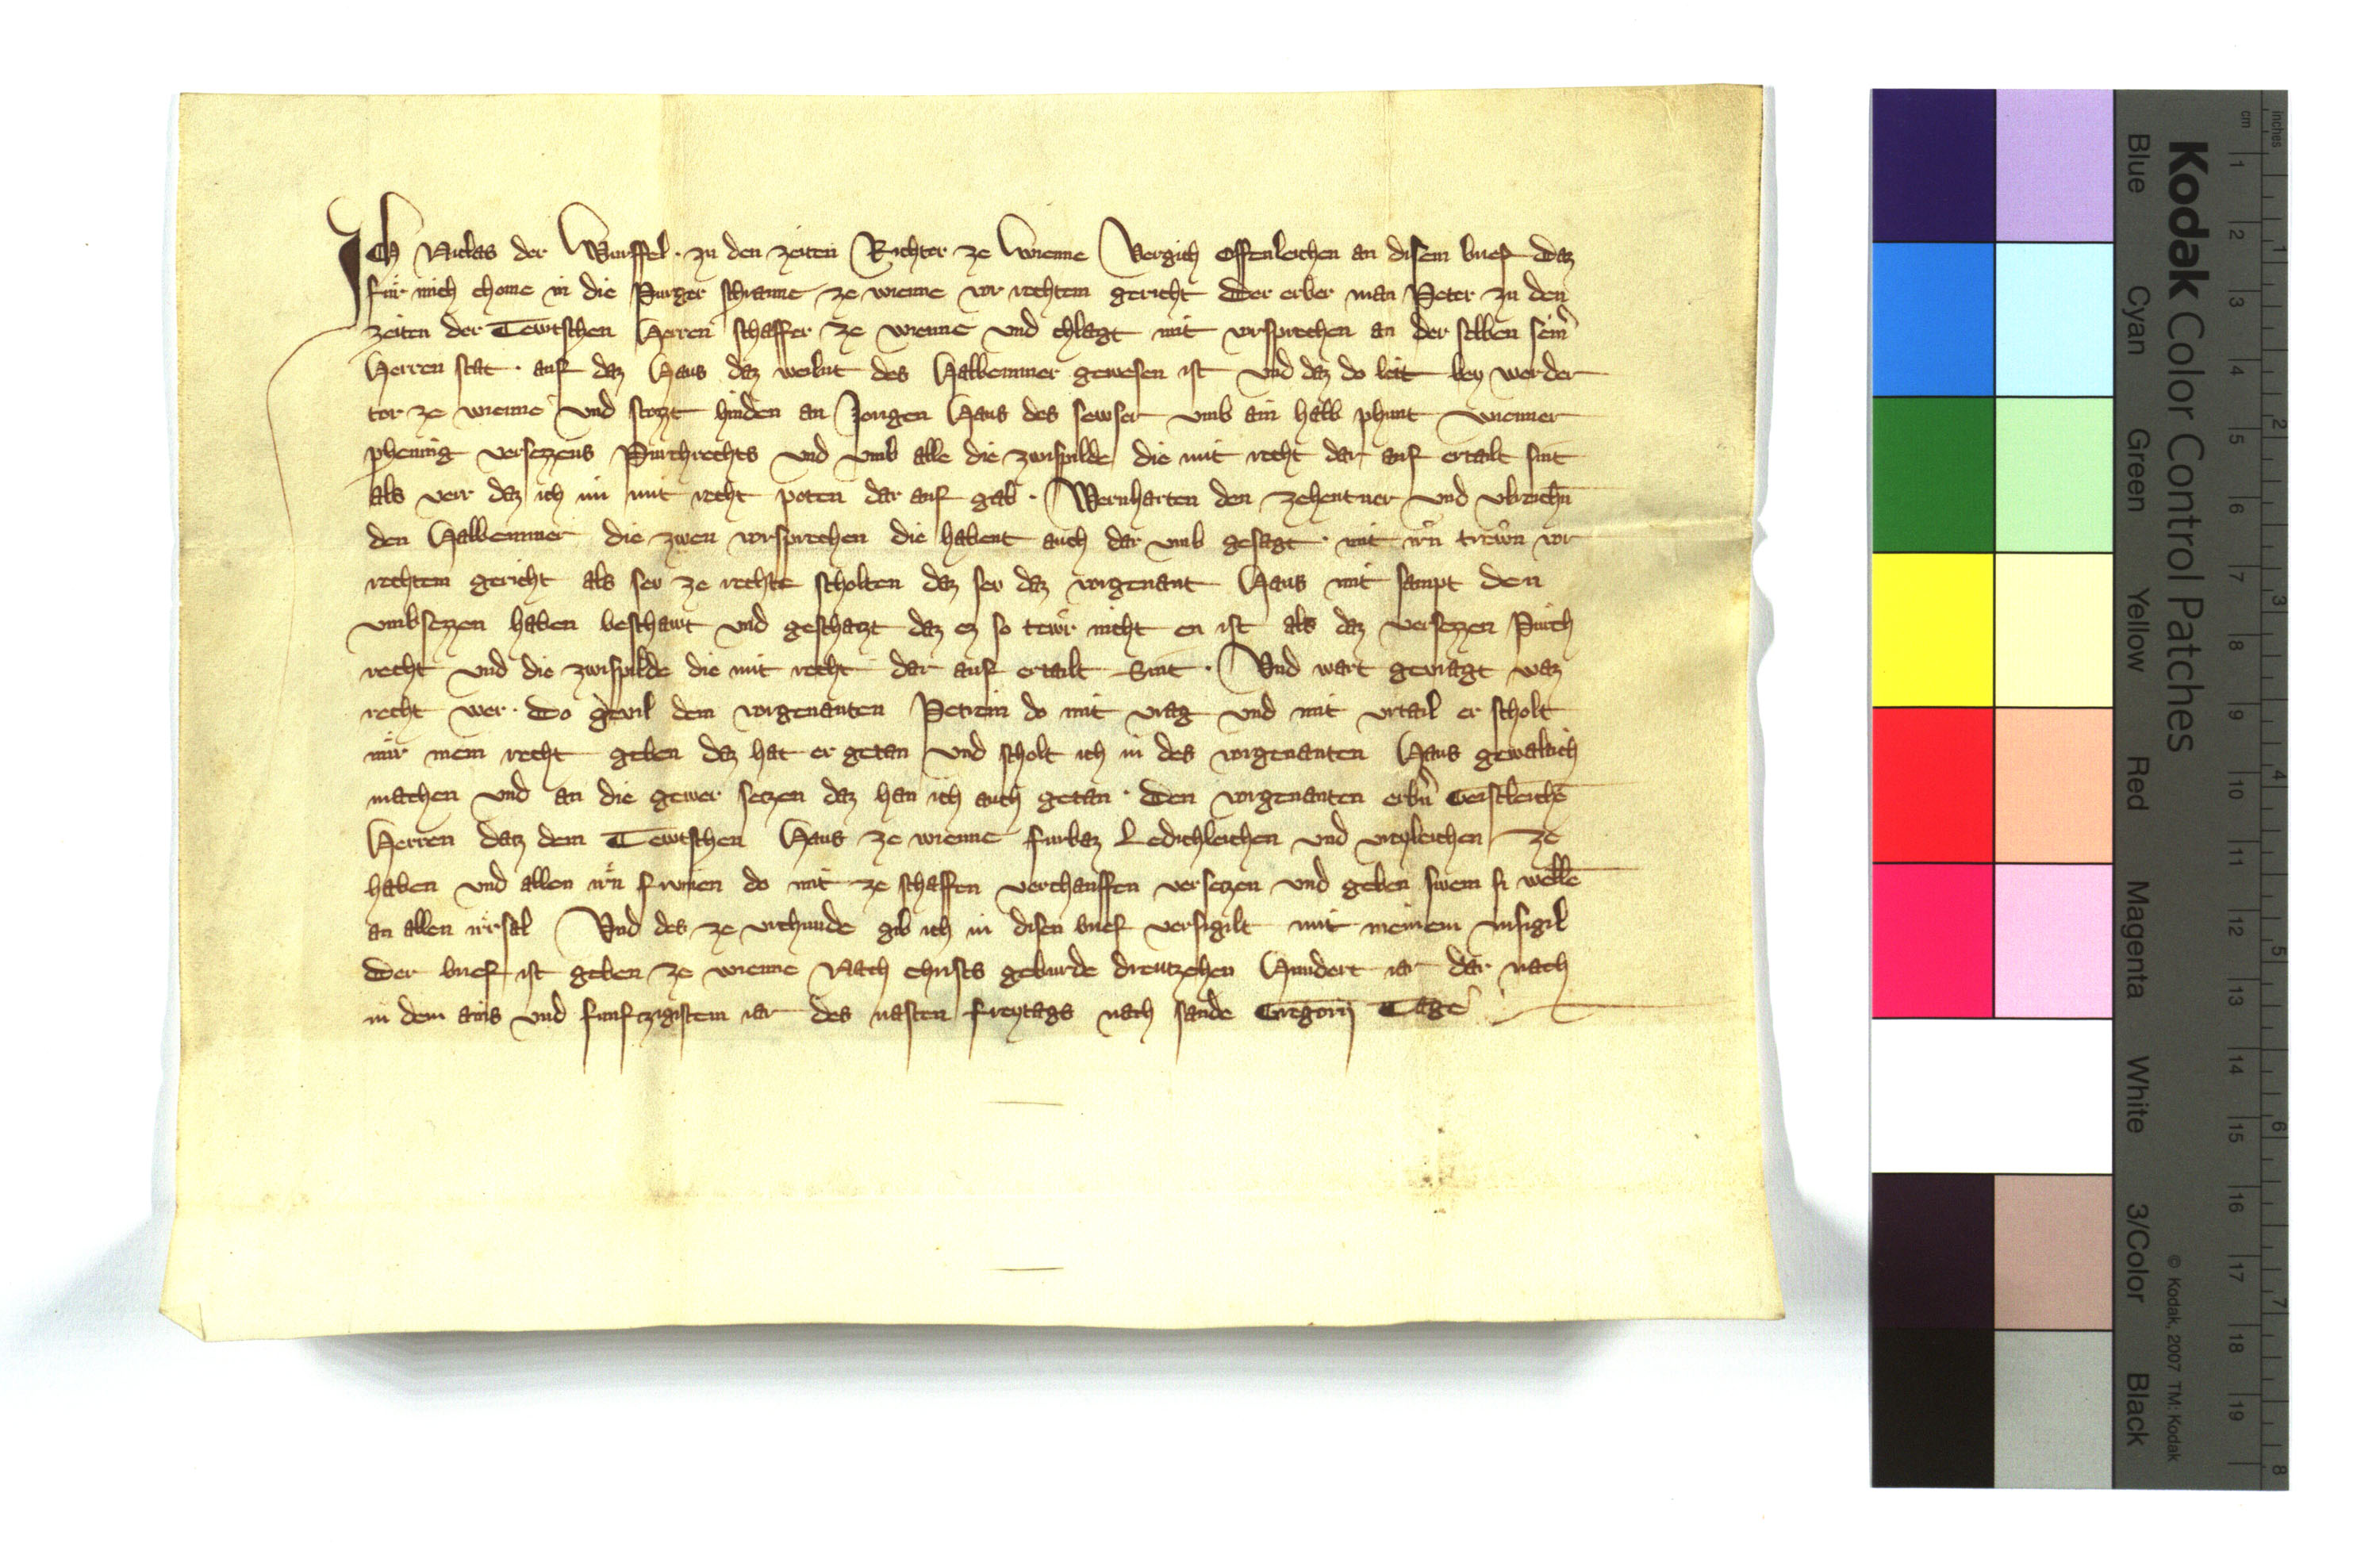 Ich Niclas der Wurffel · zu den zeiten Richter ze wienne Vergich offenleichen an disem brief Daz
fuͤr mich chome in die Purger schranne ze wienne vor rechtem gericht Der erber man Peter zu den
zeiten der Tewtschen Herren schaffer ze wienne vnd chlagt mit vorsprechen an der selben seinͤ
Herren stat · auf daz Haus daz weilnt des Halbemmer gewesen ist vnd daz do leit bey werder
tor ze wienne vnd stozzt hinden an Jorgen Haus des sewser vmb ain halb phunt wienner
phening versezzens Purchrechts vnd vmb alle die zwispilde die mit recht dar auf ertailt sint
als verr daz ich im mit recht poten dar auf gab · Wernharten den zehentner vnd vlreichn̄
den Halbemmer die zwen vorsprechen die habent auch dar vmb gesagt · mit irn̄ trewn̄ vor
rechtem gericht als ser ze rechte scholten daz ser daz vorgenant Haus mit sampt den
vmbsezzen haben beschawt vnd geschatzt daz ez so tewr nicht en ist als daz versezzen Purch
recht vnd die zwispilde die mit recht dar auf ertailt Sint · Vnd wart gevragt waz
recht wer · Do geuil dem vorgenanten Petrein do mit vrag vnd mit vrtail er scholt
mir mein recht geben daz hat er getan vnd scholt ich in des vorgenanten Haus gewaltich
machen vnd an die gewer setzen daz han ich auch getan · Den vorgenanten erbn̄ Geistleichē
Herren datz dem Tewtschen Haus ze wienne furbaz Ledichleichen vnd vreyleichen ze
haben vnd allen irn̄ frumen do mit ze schaffen verchauffen versetzen vnd geben swem si wellē
an allen irrsal Vnd des ze vrchunde gib ich in disen brief versigilt mit meinem insigil
Der brief ist geben ze wienne Nach christs geburde dreutzehen Hundert iar dar nach
in dem ains vnd funftzigistem iar des nasten freytags nach sande Gregorij Tage
Kodak Color Control Patches
Blue Cyan Green Yellow Red Magenta White 3/Color Black
© Kodak, 2007 TM: Kodak
inches 1 2 3 4 5 6 7 8
cm 1 2 3 4 5 6 7 8 9 10 11 12 13 14 15 16 17 18 19